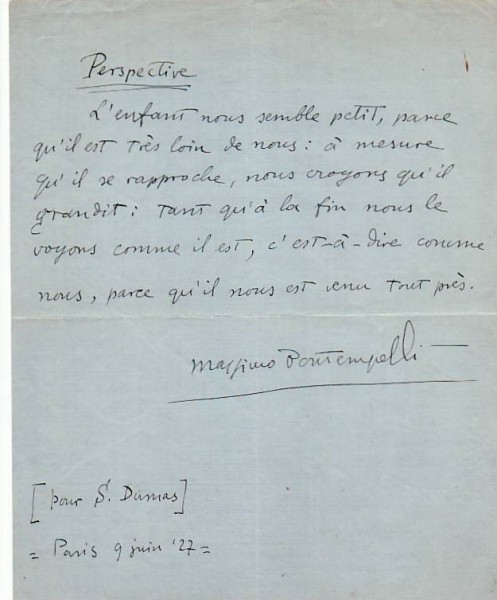 Perspective
L'enfant nous semble petit, parce
qu'il est très loin de nous : à mesure
qu'il se rapproche, nous croyons qu'il
grandit : tant qu'à la fin nous le
voyons comme il est, c'est-à-dire comme
nous, parce qu'il nous est venu tout près.
Massimo Bontempelli —
[pour S. Dumas]
= Paris 9 juin '27 =